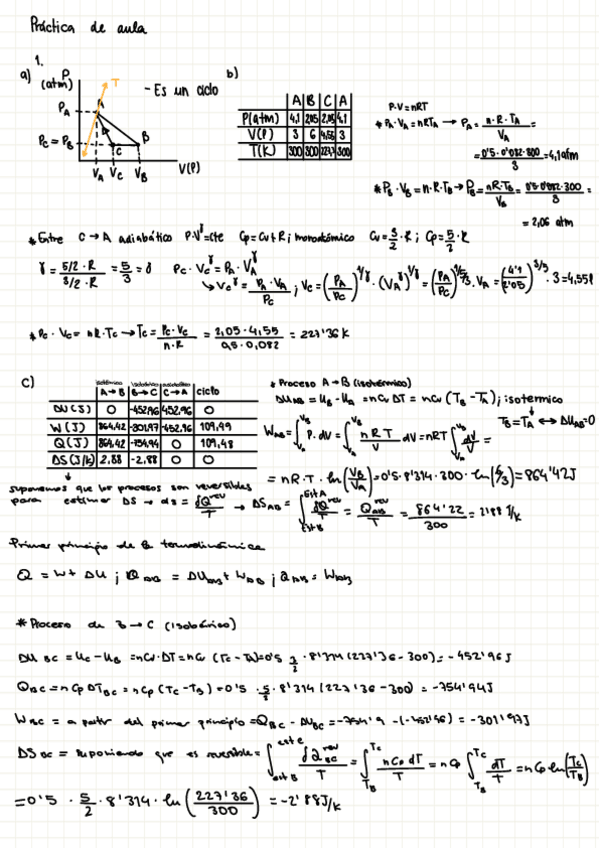 Práctica de aula
1.
a) P (atm) T - Es un ciclo b)
P_A A
P_C = P_B C B
V_A V_C V_B V(l)
A B C A
P(atm) 4,1 2,05 2,05 4,1
V(l) 3 6 4,55 3
T(K) 300 300 227,7 300
P·V=nRT
* P_A·V_A = nRT_A → P_A = n·R·T_A / V_A =
= 0'5·0'082·300 / 3 = 4,1 atm
* P_B·V_B = n·R·T_B → P_B = nR·T_B / V_B = 0'5·0'082·300 / 3 =
= 2,06 atm
* Entre C → A adiabático P·V^γ = cte Cp = Cv + R ; monoatómico Cv = 3/2·R ; Cp = 5/2·R
γ = 5/2·R / 3/2·R = 5/3 = γ P_C·V_C^γ = P_A·V_A^γ
↳ V_C^γ = P_A·V_A / P_C ; V_C = (P_A/P_C)^1/γ · (V_A^γ)^1/γ = (P_A/P_C)^1/5/3 · V_A = (4'1/2'05)^3/5 · 3 = 4,55 l
* P_C·V_C = nR·T_C → T_C = P_C·V_C / n·R = 2,05·4,55 / 0,5·0,082 = 227'36 K
c)
isotérmico isobárico adiabático
A→B B→C C→A ciclo
DU (J) 0 -452,96 452,96 0
W (J) 864,42 -301,97 -452,96 109,49
Q (J) 864,42 -754,94 0 109,48
DS (J/K) 2,88 -2,88 0 0
* Proceso A→B (isotérmico)
DU_AB = U_B - U_A = nCv DT = nCv (T_B - T_A) ; isotermico
T_B = T_A ↔ DU_AB = 0
W_AB = ∫ P·dV = ∫ nRT/V dV = nRT ∫ dV/V =
= nR·T·ln(V_B/V_A) = 0'5·8'314·300·ln(6/3) = 864'42 J
suponemos que los procesos son reversibles
para estimar DS → ds = δQ^rev / T → DS_AB = ∫ δQ^rev / T = Q_AB^rev / T = 864'22 / 300 = 2'88 J/K
Primer principio de la termodinámica
Q = W + DU ; Q_AB = DU_AB + W_AB ; Q_AB = W_AB
* Proceso de B → C (isobárico)
DU_BC = U_C - U_B = nCv·DT = nCv (T_C - T_B) = 0'5 3/2 · 8'314 (227'36 - 300) = -452'96 J
Q_BC = nCp DT_BC = nCp (T_C - T_B) = 0'5 · 5/2 · 8'314 (227'36 - 300) = -754'94 J
W_BC = a partir del primer principio = Q_BC - DU_BC = -754'9 - (-452'96) = -301'97 J
DS_BC = suponiendo que es reversible = ∫ δQ_BC^rev / T = ∫ nCp dT / T = nCp ∫ dT/T = nCp ln(T_C/T_B)
= 0'5 · 5/2 · 8'314 · ln(227'36/300) = -2'88 J/K